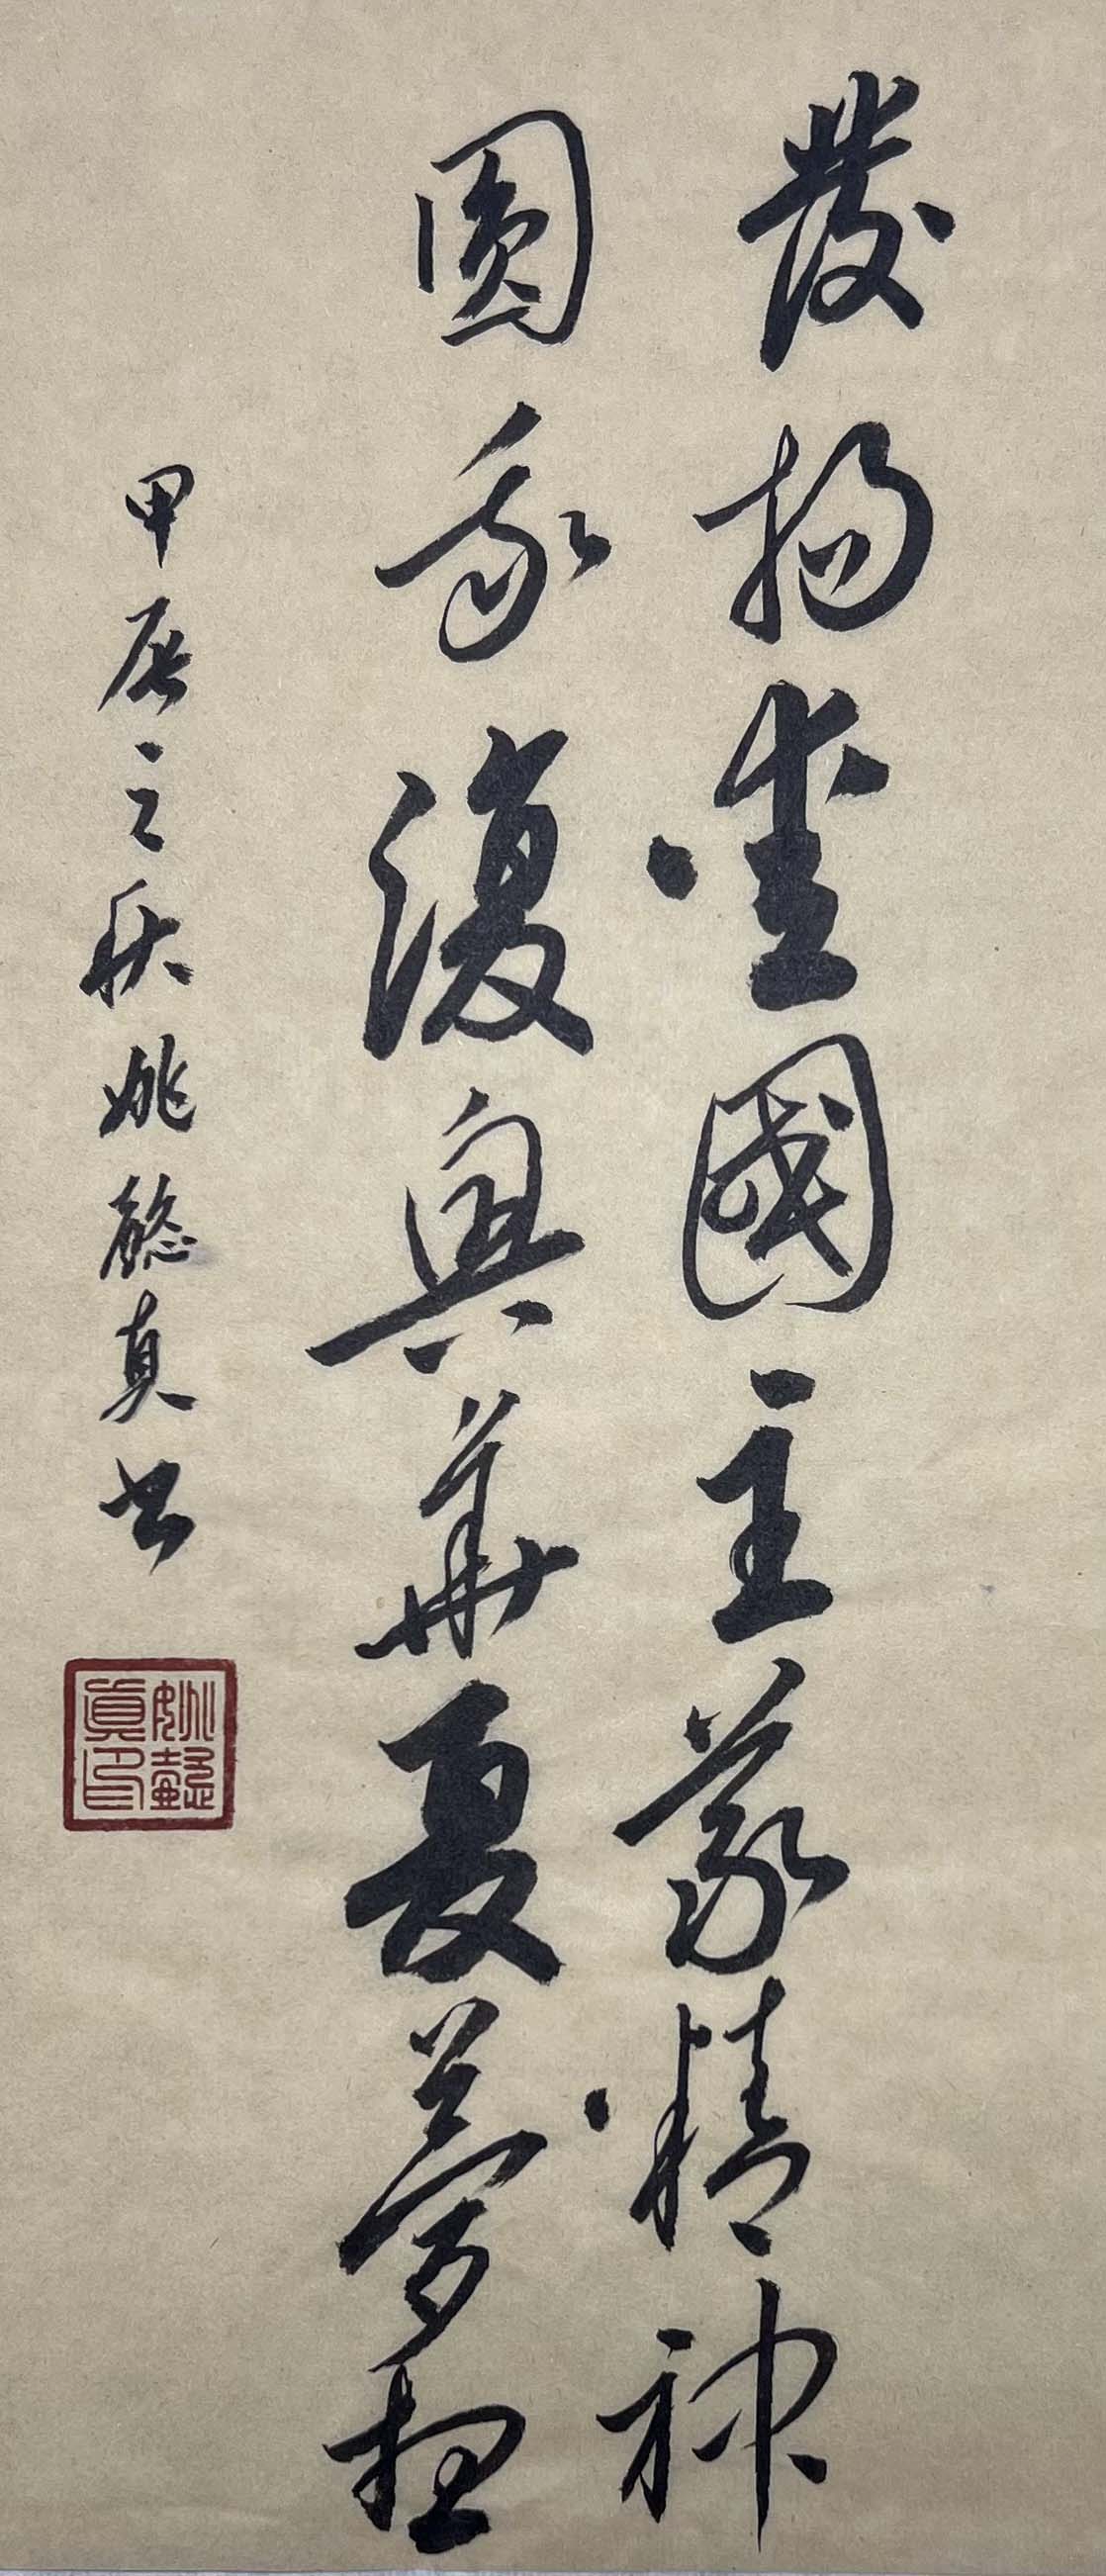 發揚愛國主義精神
圓我復興華夏夢想
甲辰之秋姚懿真書
姚懿
眞印